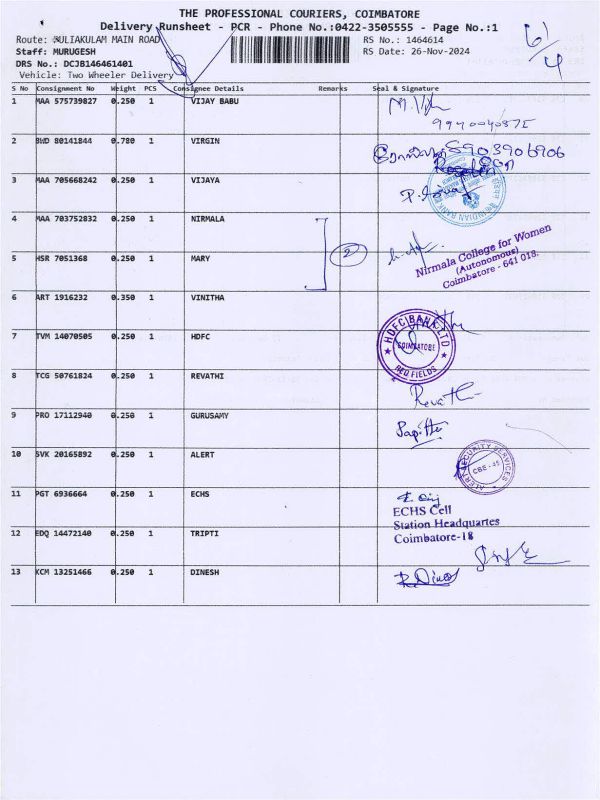 THE PROFESSIONAL COURIERS, COIMBATORE
Delivery Runsheet - PCR - Phone No.:0422-3505555 - Page No.:1
Route: PULIAKULAM MAIN ROAD
Staff: MURUGESH
DRS No.: DCJB146461401
Vehicle: Two Wheeler Delivery
RS No.: 1464614
RS Date: 26-Nov-2024
61/4
S No Consignment No Weight PCS Consignee Details Remarks Seal & Signature
1 MAA 575739827 0.250 1 VIJAY BABU
2 BWD 80141844 0.780 1 VIRGIN 8903906906
3 MAA 705668242 0.250 1 VIJAYA
INDIAN BANK
4 MAA 703752832 0.250 1 NIRMALA
2
Nirmala College for Women
(Autonomous)
Coimbatore - 641 018.
5 HSR 7051368 0.250 1 MARY
6 ART 1916232 0.350 1 VINITHA
7 TVM 14070505 0.250 1 HDFC
HDFC BANK LTD
COIMBATORE
RED FIELDS
8 TCG 50761824 0.250 1 REVATHI
9 PRO 17112940 0.250 1 GURUSAMY
10 SVK 20165892 0.250 1 ALERT
ALERT SECURITY SERVICES
CBE-45
11 PGT 6936664 0.250 1 ECHS
ECHS Cell
Station Headquartes
Coimbatore-18
12 EDQ 14472140 0.250 1 TRIPTI
13 KCM 13251466 0.250 1 DINESH
R.Dinesh